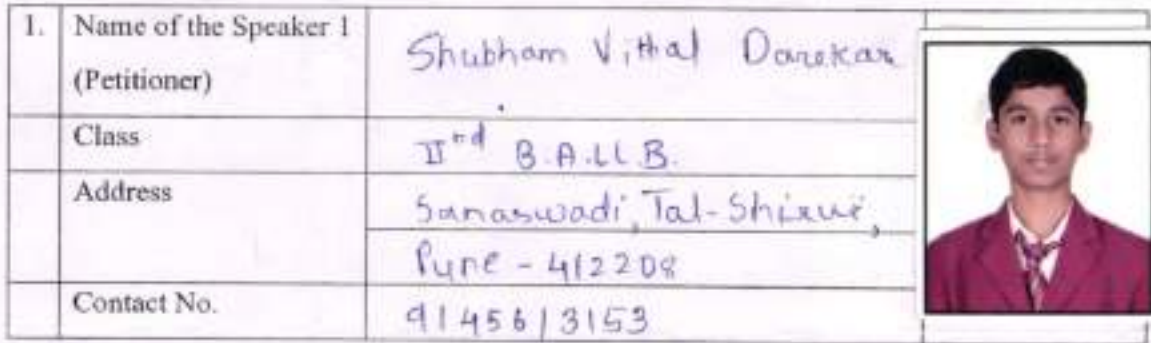 1. Name of the Speaker 1
(Petitioner)
Shubham Vitthal Darekar
Class
IInd B.A.LL.B.
Address
Sanaswadi, Tal-Shirur,
Pune - 412208
Contact No.
9145613153